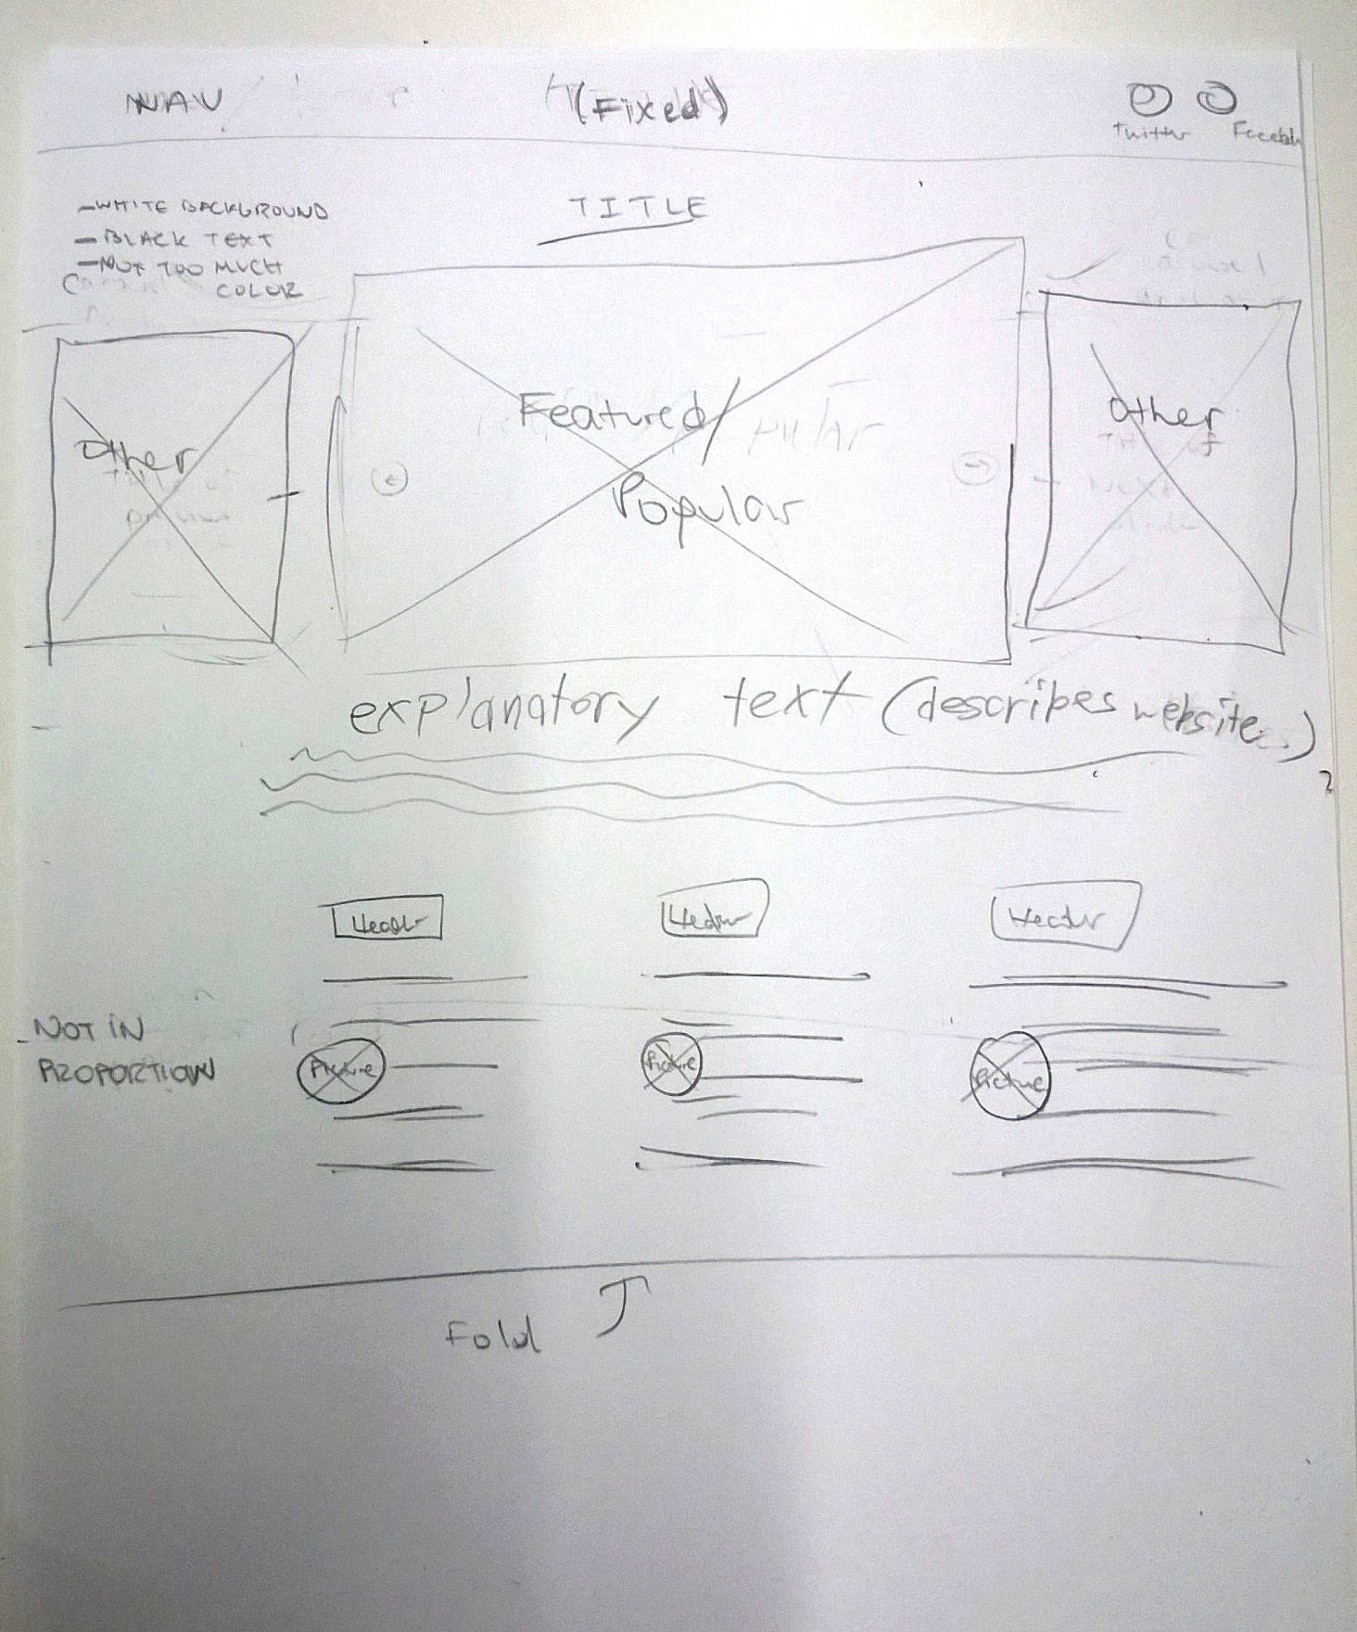 NAV
(Fixed)
Twitter
- WHITE BACKGROUND
- BLACK TEXT
- NOT TOO MUCH
COLOR
TITLE
Other
Featured/
Popular
Other
explanatory text (describes website...)
Header
Header
Header
NOT IN
PROPORTION
Picture
Picture
Picture
Fold